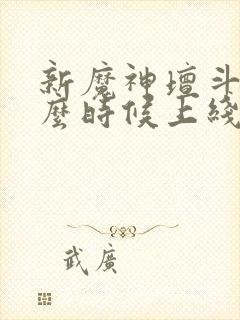 新魔神壇斗
麼時候上綫
武廣